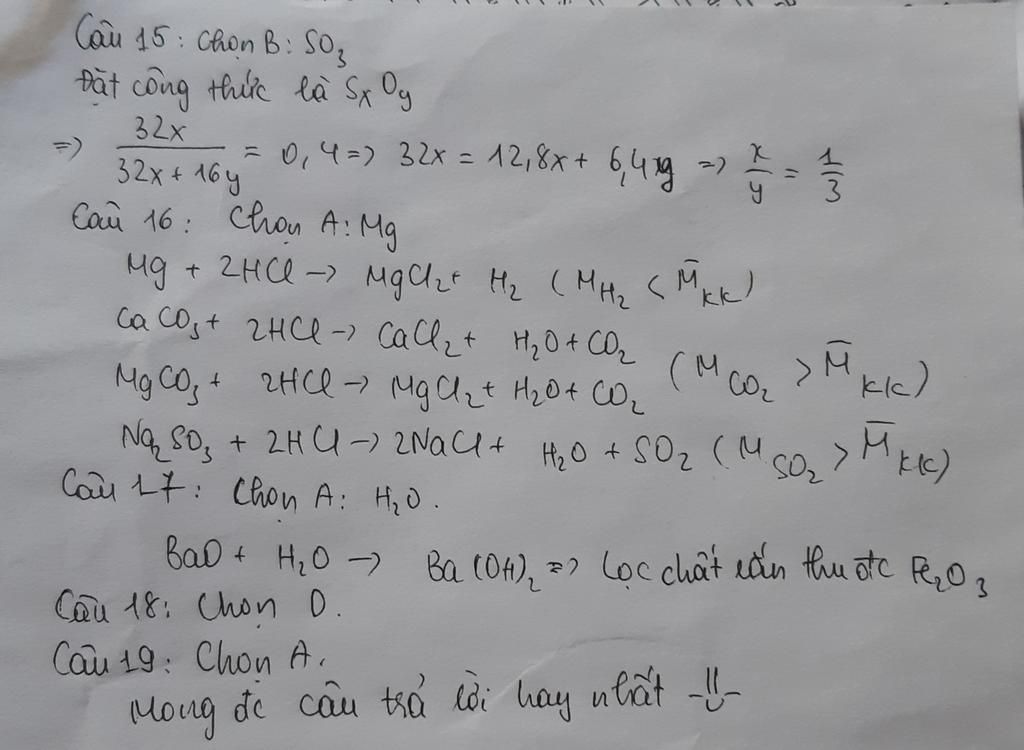 Câu 15: Chọn B: SO₃
Đặt công thức là SxOy
=> 32x / (32x + 16y) = 0,4 => 32x = 12,8x + 6,4y => x/y = 1/3
Câu 16: Chọn A: Mg
Mg + 2HCl -> MgCl₂ + H₂ (M H₂ < M̄ KK)
CaCO₃ + 2HCl -> CaCl₂ + H₂O + CO₂
MgCO₃ + 2HCl -> MgCl₂ + H₂O + CO₂ (M CO₂ > M̄ KK)
Na₂SO₃ + 2HCl -> 2NaCl + H₂O + SO₂ (M SO₂ > M̄ KK)
Câu 17: Chọn A: H₂O.
BaO + H₂O -> Ba(OH)₂ => Lọc chất rắn thu đc Fe₂O₃
Câu 18: Chọn D.
Câu 19: Chọn A.
Mong đc câu trả lời hay nhất